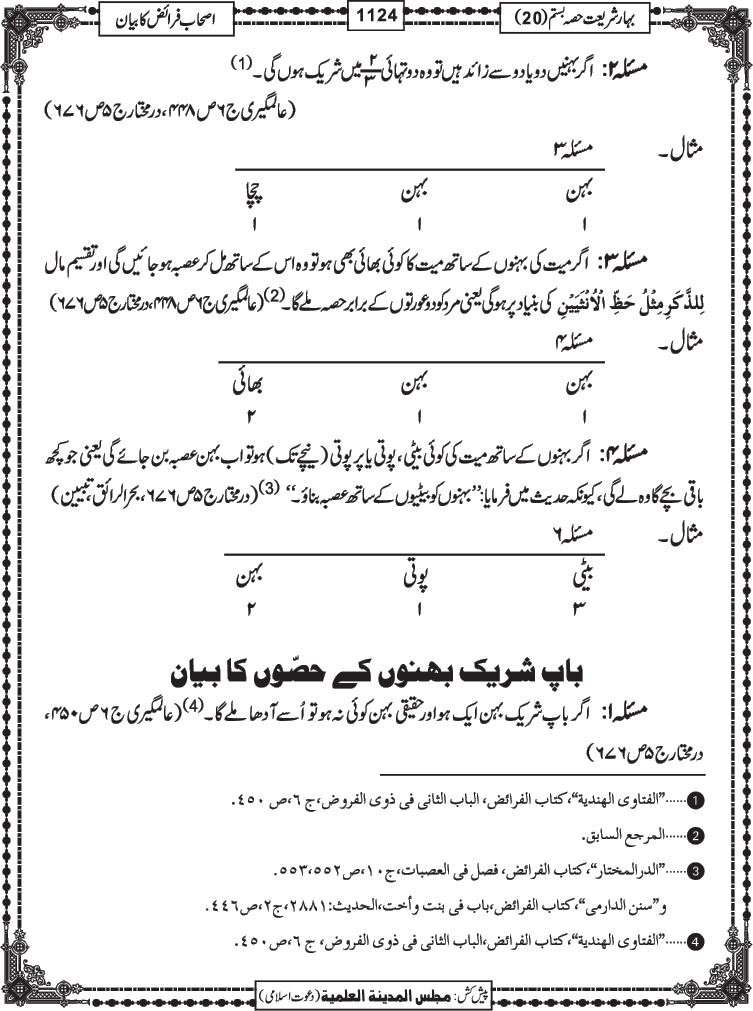 بہارِ شریعت حصہ بستم (20)
1124
اصحاب فرائض کا بیان
مسئلہ ۲: اگر بہنیں دو یا دو سے زائد ہیں تو وہ دو تہائی ۲/۳ میں شریک ہوں گی۔ (1)
(عالمگیری ج ۶ ص ۴۴۸، در مختار ج ۵ ص ۶۷۶)
مثال۔ مسئلہ ۳
بہن بہن چچا
۱ ۱ ۱
مسئلہ ۳: اگر میت کی بہنوں کے ساتھ میت کا کوئی بھائی بھی ہو تو وہ اس کے ساتھ مل کر عصبہ ہو جائیں گی اور تقسیم مال
لِلذَّكَرِ مِثْلُ حَظِّ الْاُنْثَیَیْنِ کی بنیاد پر ہوگی یعنی مرد کو دو عورتوں کے برابر حصہ ملے گا۔ (2) (عالمگیری ج ۶ ص ۴۴۸، در مختار ج ۵ ص ۶۷۶)
مثال۔ مسئلہ ۴
بہن بہن بھائی
۱ ۱ ۲
مسئلہ ۴: اگر بہنوں کے ساتھ میت کی کوئی بیٹی، پوتی یا پر پوتی (نیچے تک) ہو تو اب بہن عصبہ بن جائے گی یعنی جو کچھ
باقی بچے گا وہ لے گی، کیونکہ حدیث میں فرمایا: ’’بہنوں کو بیٹیوں کے ساتھ عصبہ بناؤ۔‘‘ (3) (در مختار ج ۵ ص ۶۷۶، بحر الرائق، تبیین)
مثال۔ مسئلہ ۶
بیٹی پوتی بہن
۳ ۱ ۲
باپ شریک بھنوں کے حصّوں کا بیان
مسئلہ ۱: اگر باپ شریک بہن ایک ہو اور حقیقی بہن کوئی نہ ہو تو اُسے آدھا ملے گا۔ (4) (عالمگیری ج ۶ ص ۴۵۰،
در مختار ج ۵ ص ۶۷۶)
1 ......"الفتاوی الھندیۃ"، کتاب الفرائض، الباب الثانی فی ذوی الفروض، ج ۶، ص ۴۵۰.
2 ......المرجع السابق.
3 ......"الدرالمختار"، کتاب الفرائض، فصل فی العصبات، ج ۱۰، ص ۵۵۲، ۵۵۳.
و"سنن الدارمی"، کتاب الفرائض، باب فی بنت وأخت، الحدیث: ۲۸۸۱، ج ۲، ص ۴۴۶.
4 ......"الفتاوی الھندیۃ"، کتاب الفرائض، الباب الثانی فی ذوی الفروض، ج ۶، ص ۴۵۰.
پیش کش: مجلس المدینۃ العلمیۃ (دعوت اسلامی)